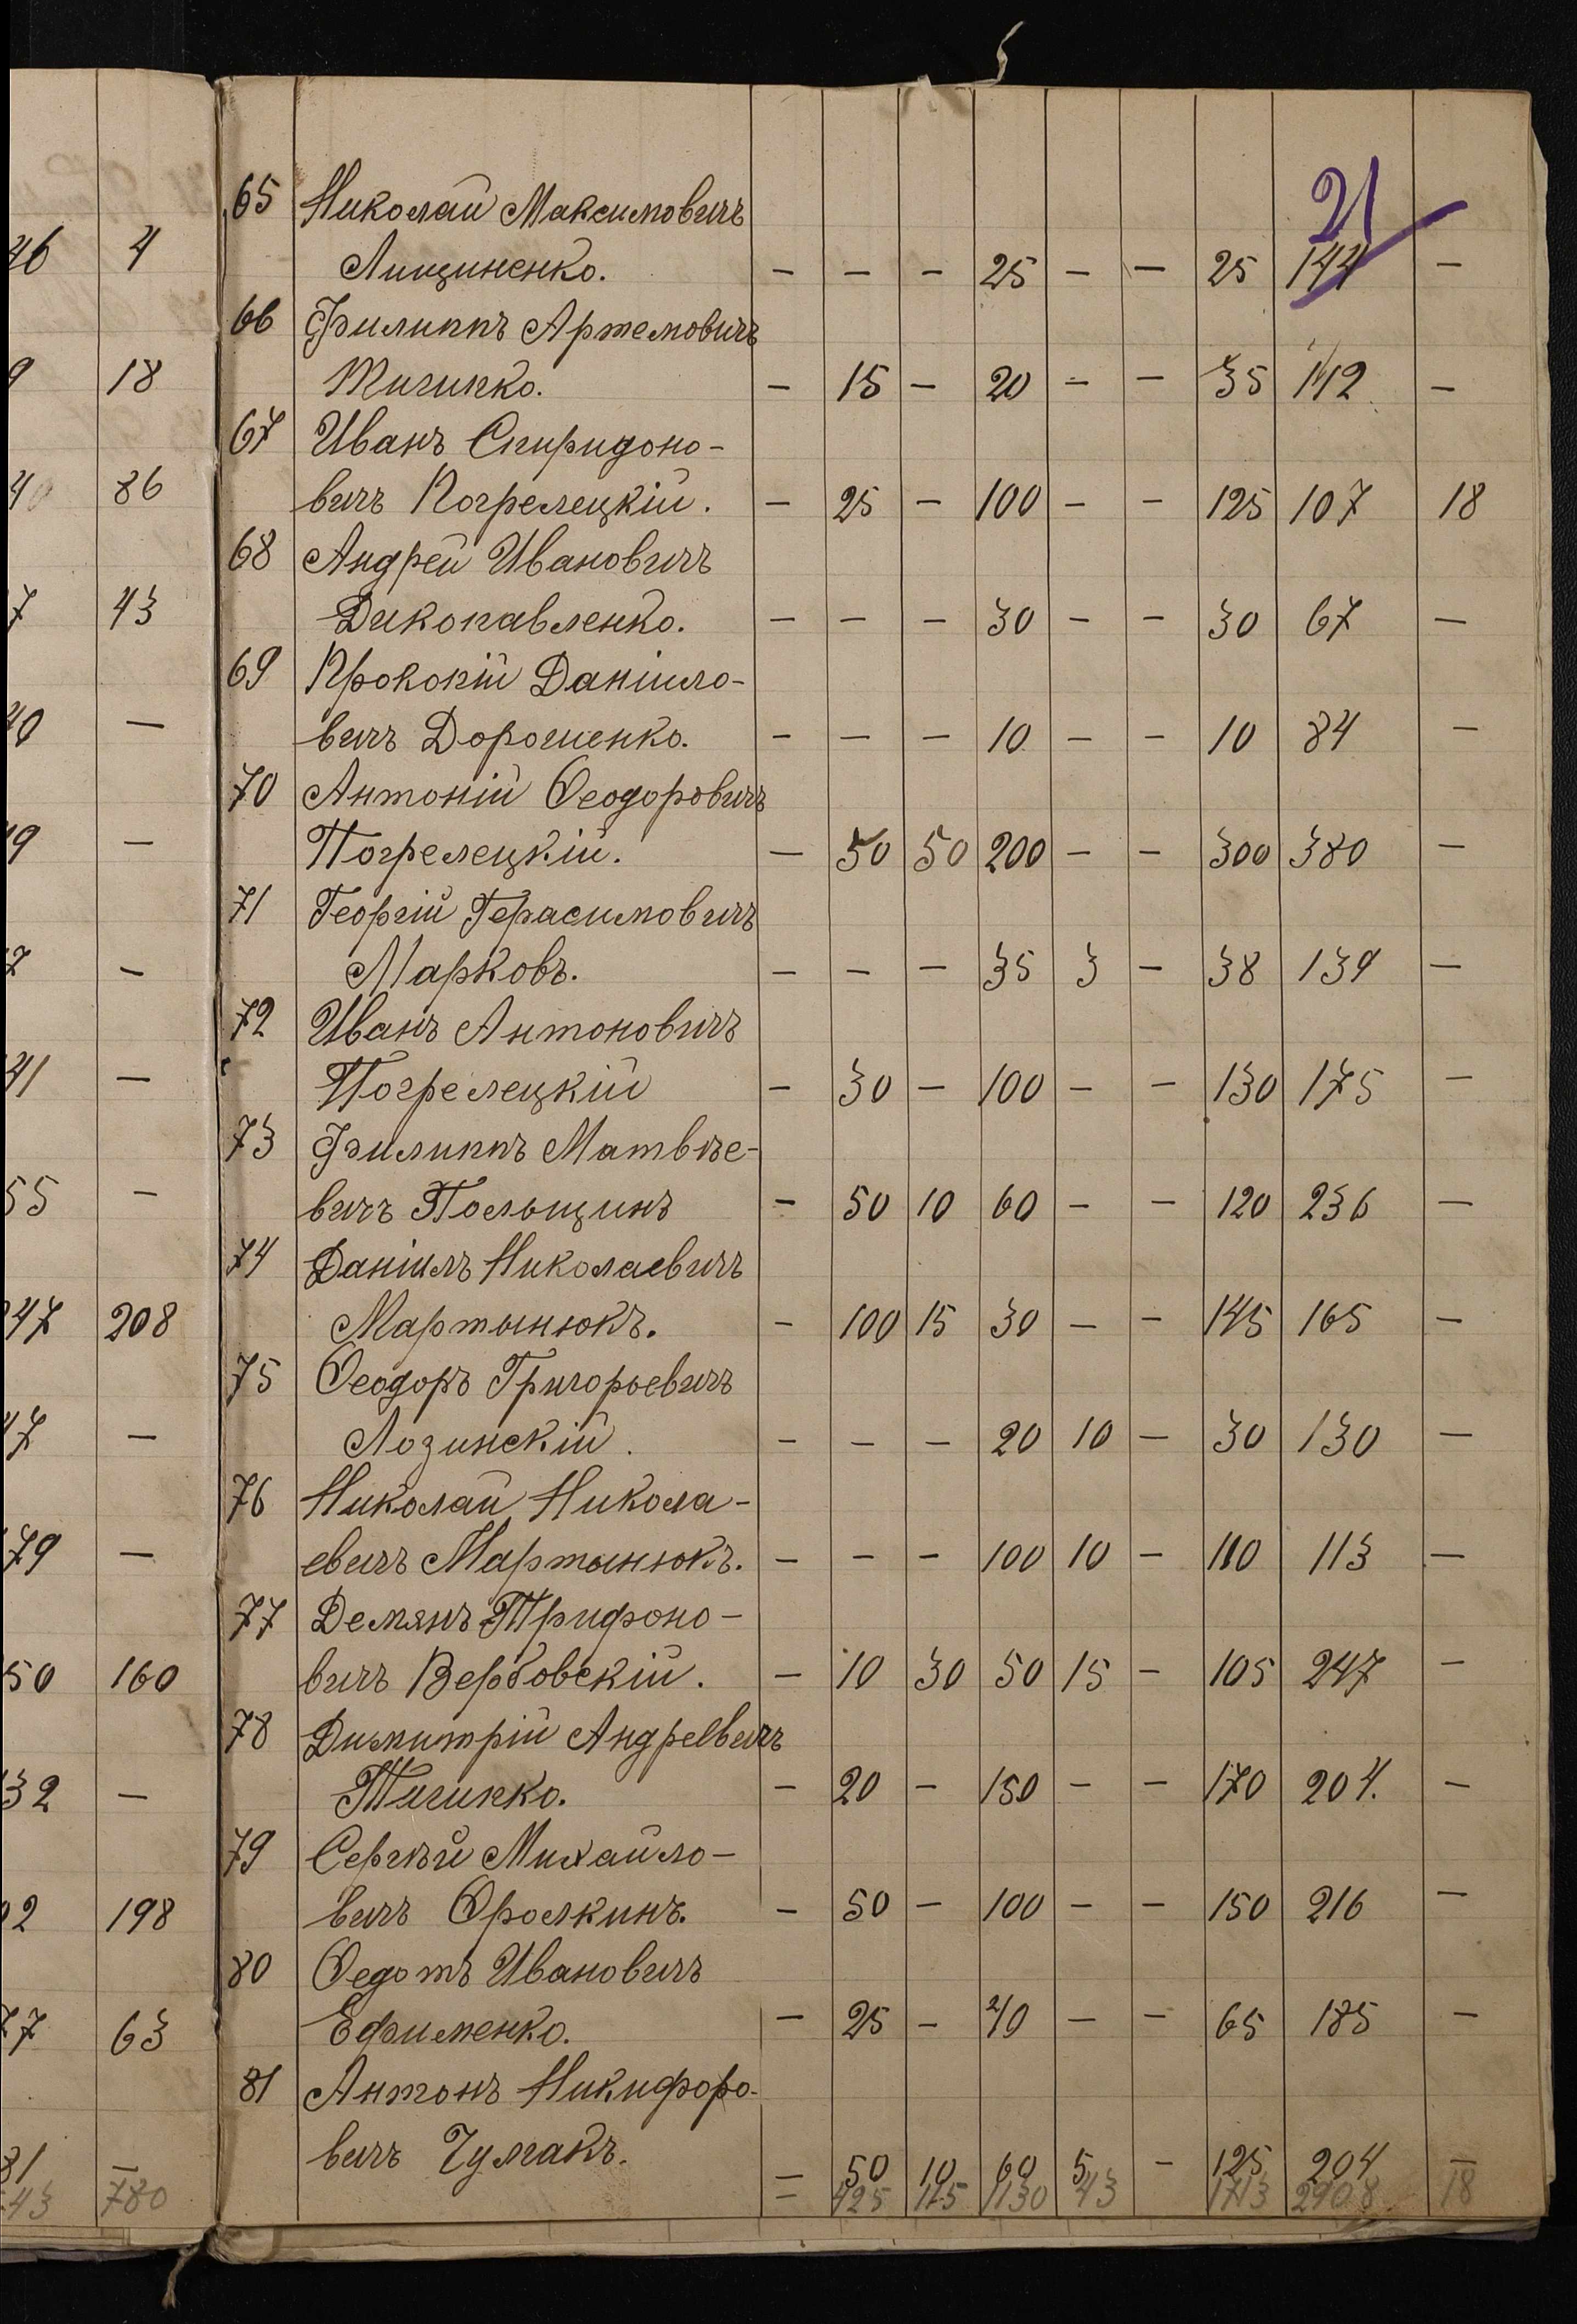 21
65 Николай Максимовичъ
46 4 Лищиненко. — — — 25 — — 25 144 —
66 Филиппъ Артемовичъ
9 18 Тигипко. — 15 — 20 — — 35 112 —
67 Иванъ Спиридоно-
40 86 вичъ Погрелецкій. — 25 — 100 — — 125 107 18
68 Андрей Ивановичъ
7 43 Дикопавленко. — — — 30 — — 30 67 —
69 Прокопій Даніило-
40 — вичъ Дорошенко. — — — 10 — — 10 84 —
70 Антоній Ѳеодоровичъ
9 — Погрелецкій. — 50 50 200 — — 300 380 —
71 Георгій Герасимовичъ
7 — Марковъ. — — — 35 3 — 38 139 —
72 Иванъ Антоновичъ
41 — Погрелецкій — 30 — 100 — — 130 175 —
73 Филиппъ Матвѣе-
55 — вичъ Польщинъ — 50 10 60 — — 120 236 —
74 Даніилъ Николаевичъ
47 208 Мартынюкъ. — 100 15 30 — — 145 165 —
75 Ѳеодоръ Григорьевичъ
47 — Лозинскій. — — — 20 10 — 30 130 —
76 Николай Никола-
79 — евичъ Мартынюкъ. — — — 100 10 — 110 113 —
77 Демянъ Трифоно-
50 160 вичъ Вербовскій. — 10 30 50 15 — 105 247 —
78 Димитрій Андреевичъ
32 — Тигипко. — 20 — 150 — — 170 204. —
79 Сергѣй Михайло-
02 198 вичъ Ѳролкинъ. — 50 — 100 — — 150 216 —
80 Ѳедотъ Ивановичъ
77 63 Ефименко. — 25 — 40 — — 65 185 —
81 Антонъ Никифоро-
81 — вичъ Чумакъ. — 50 10 60 5 — 125 204 —
43 780 — 425 115 1130 43 1713 2908 18